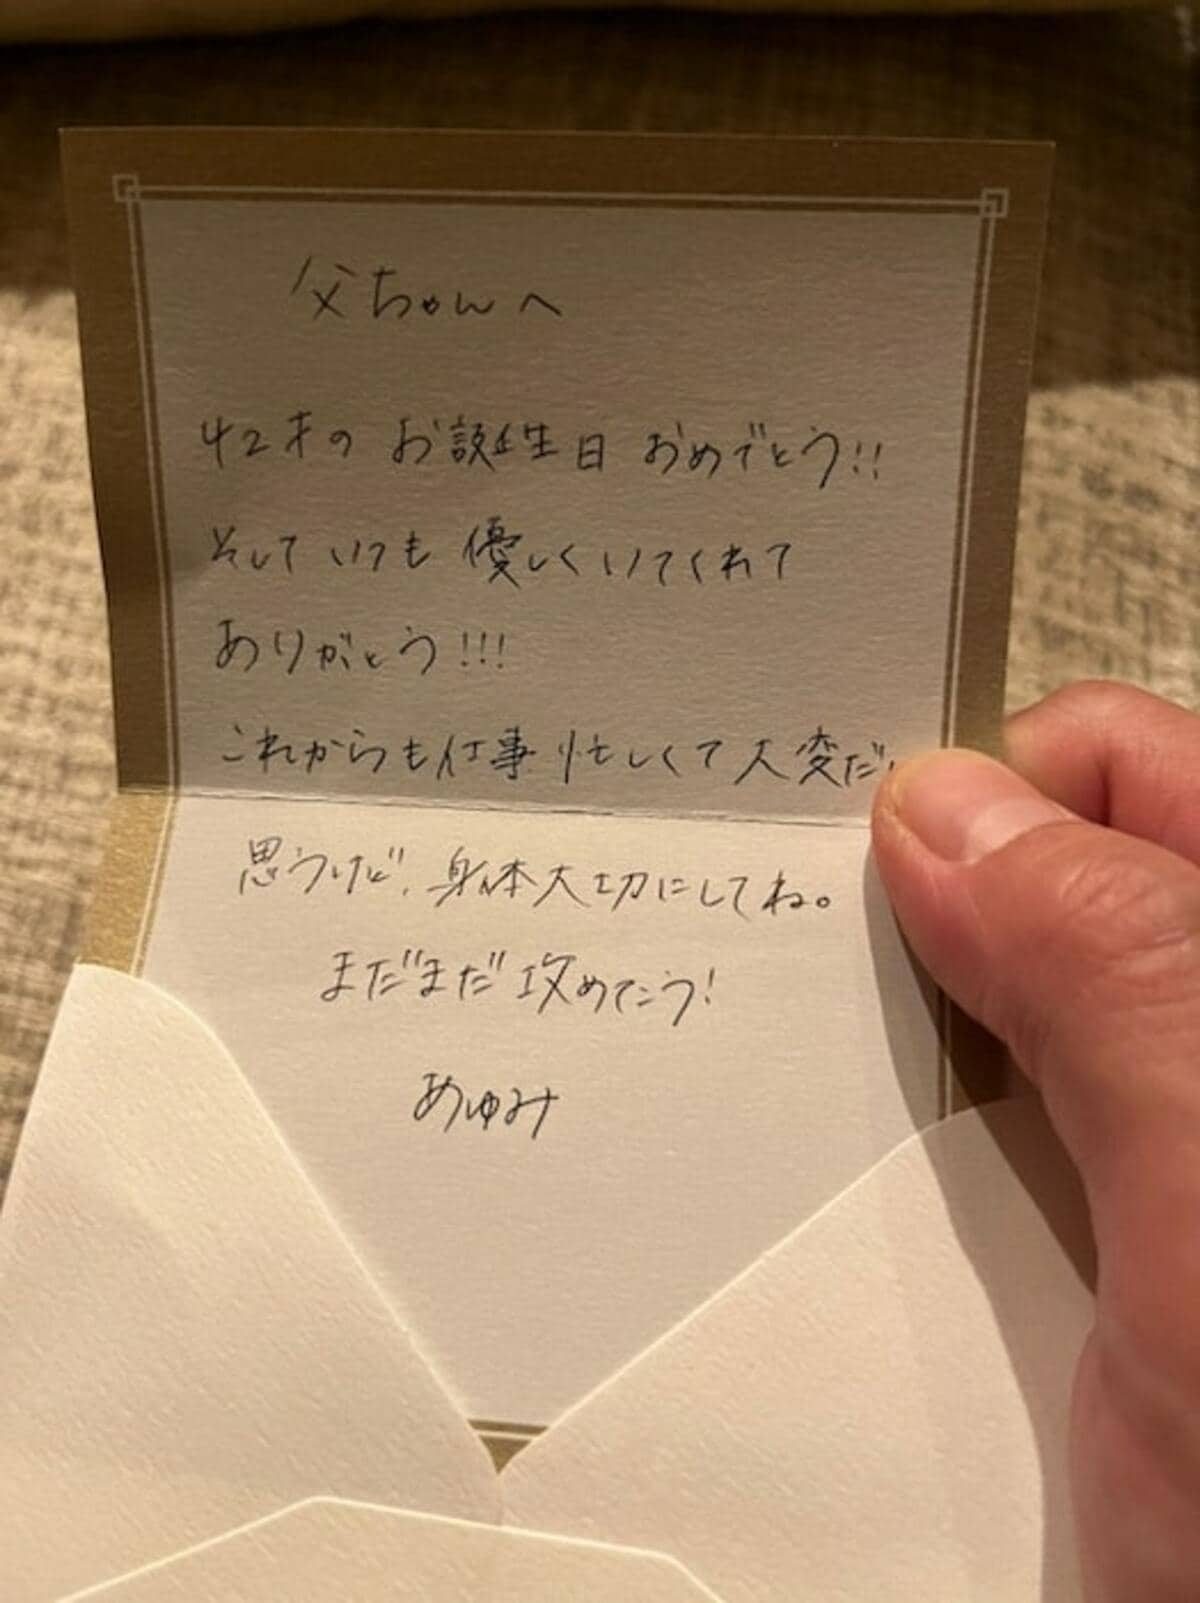 父ちゃんへ
42才の お誕生日 おめでとう!!
そして いつも 優しくいてくれて
ありがとう!!!
これからも仕事 忙しくて 大変だ
思うけど、身体大切にしてね。
まだまだ 攻めてこう!
あゆみ